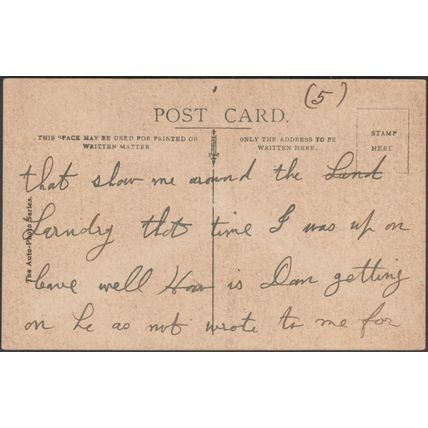 (5)
POST CARD.
THIS SPACE MAY BE USED FOR PRINTED OR
WRITTEN MATTER
ONLY THE ADDRESS TO BE
WRITTEN HERE.
STAMP
HERE
The Auto-Photo Series.
that show me around the Land
Laundry that time I was up on
leave well How is Dan getting
on he as not wrote to me for